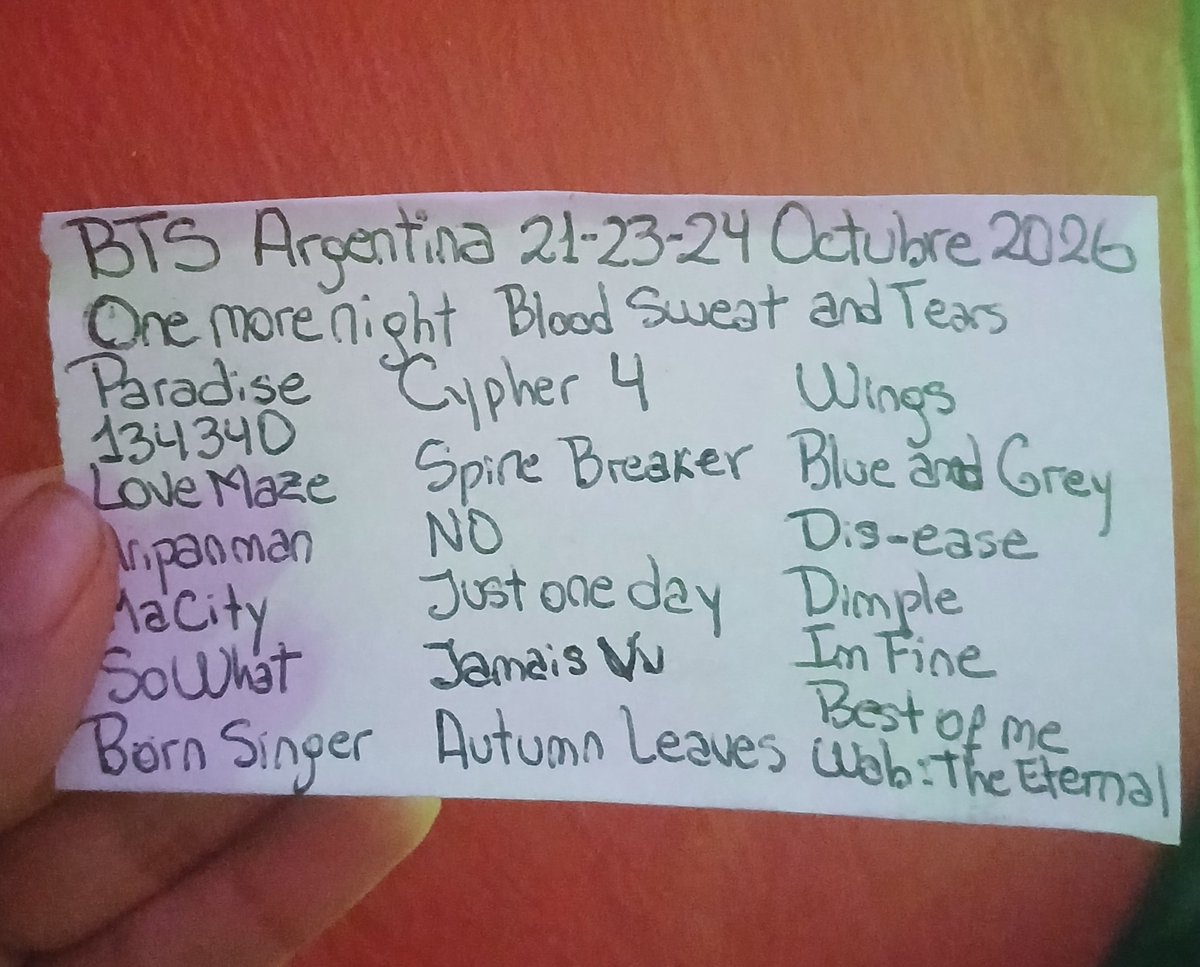 BTS Argentina 21-23-24 Octubre 2026
One more night Blood Sweat and Tears
Paradise
134340
Love Maze
Anpanman
Ma City
So What
Born Singer
Cypher 4
Spine Breaker
NO
Just one day
Jamais Vu
Autumn Leaves
Wings
Blue and Grey
Dis-ease
Dimple
Im Fine
Best of me
Wob: The Eternal